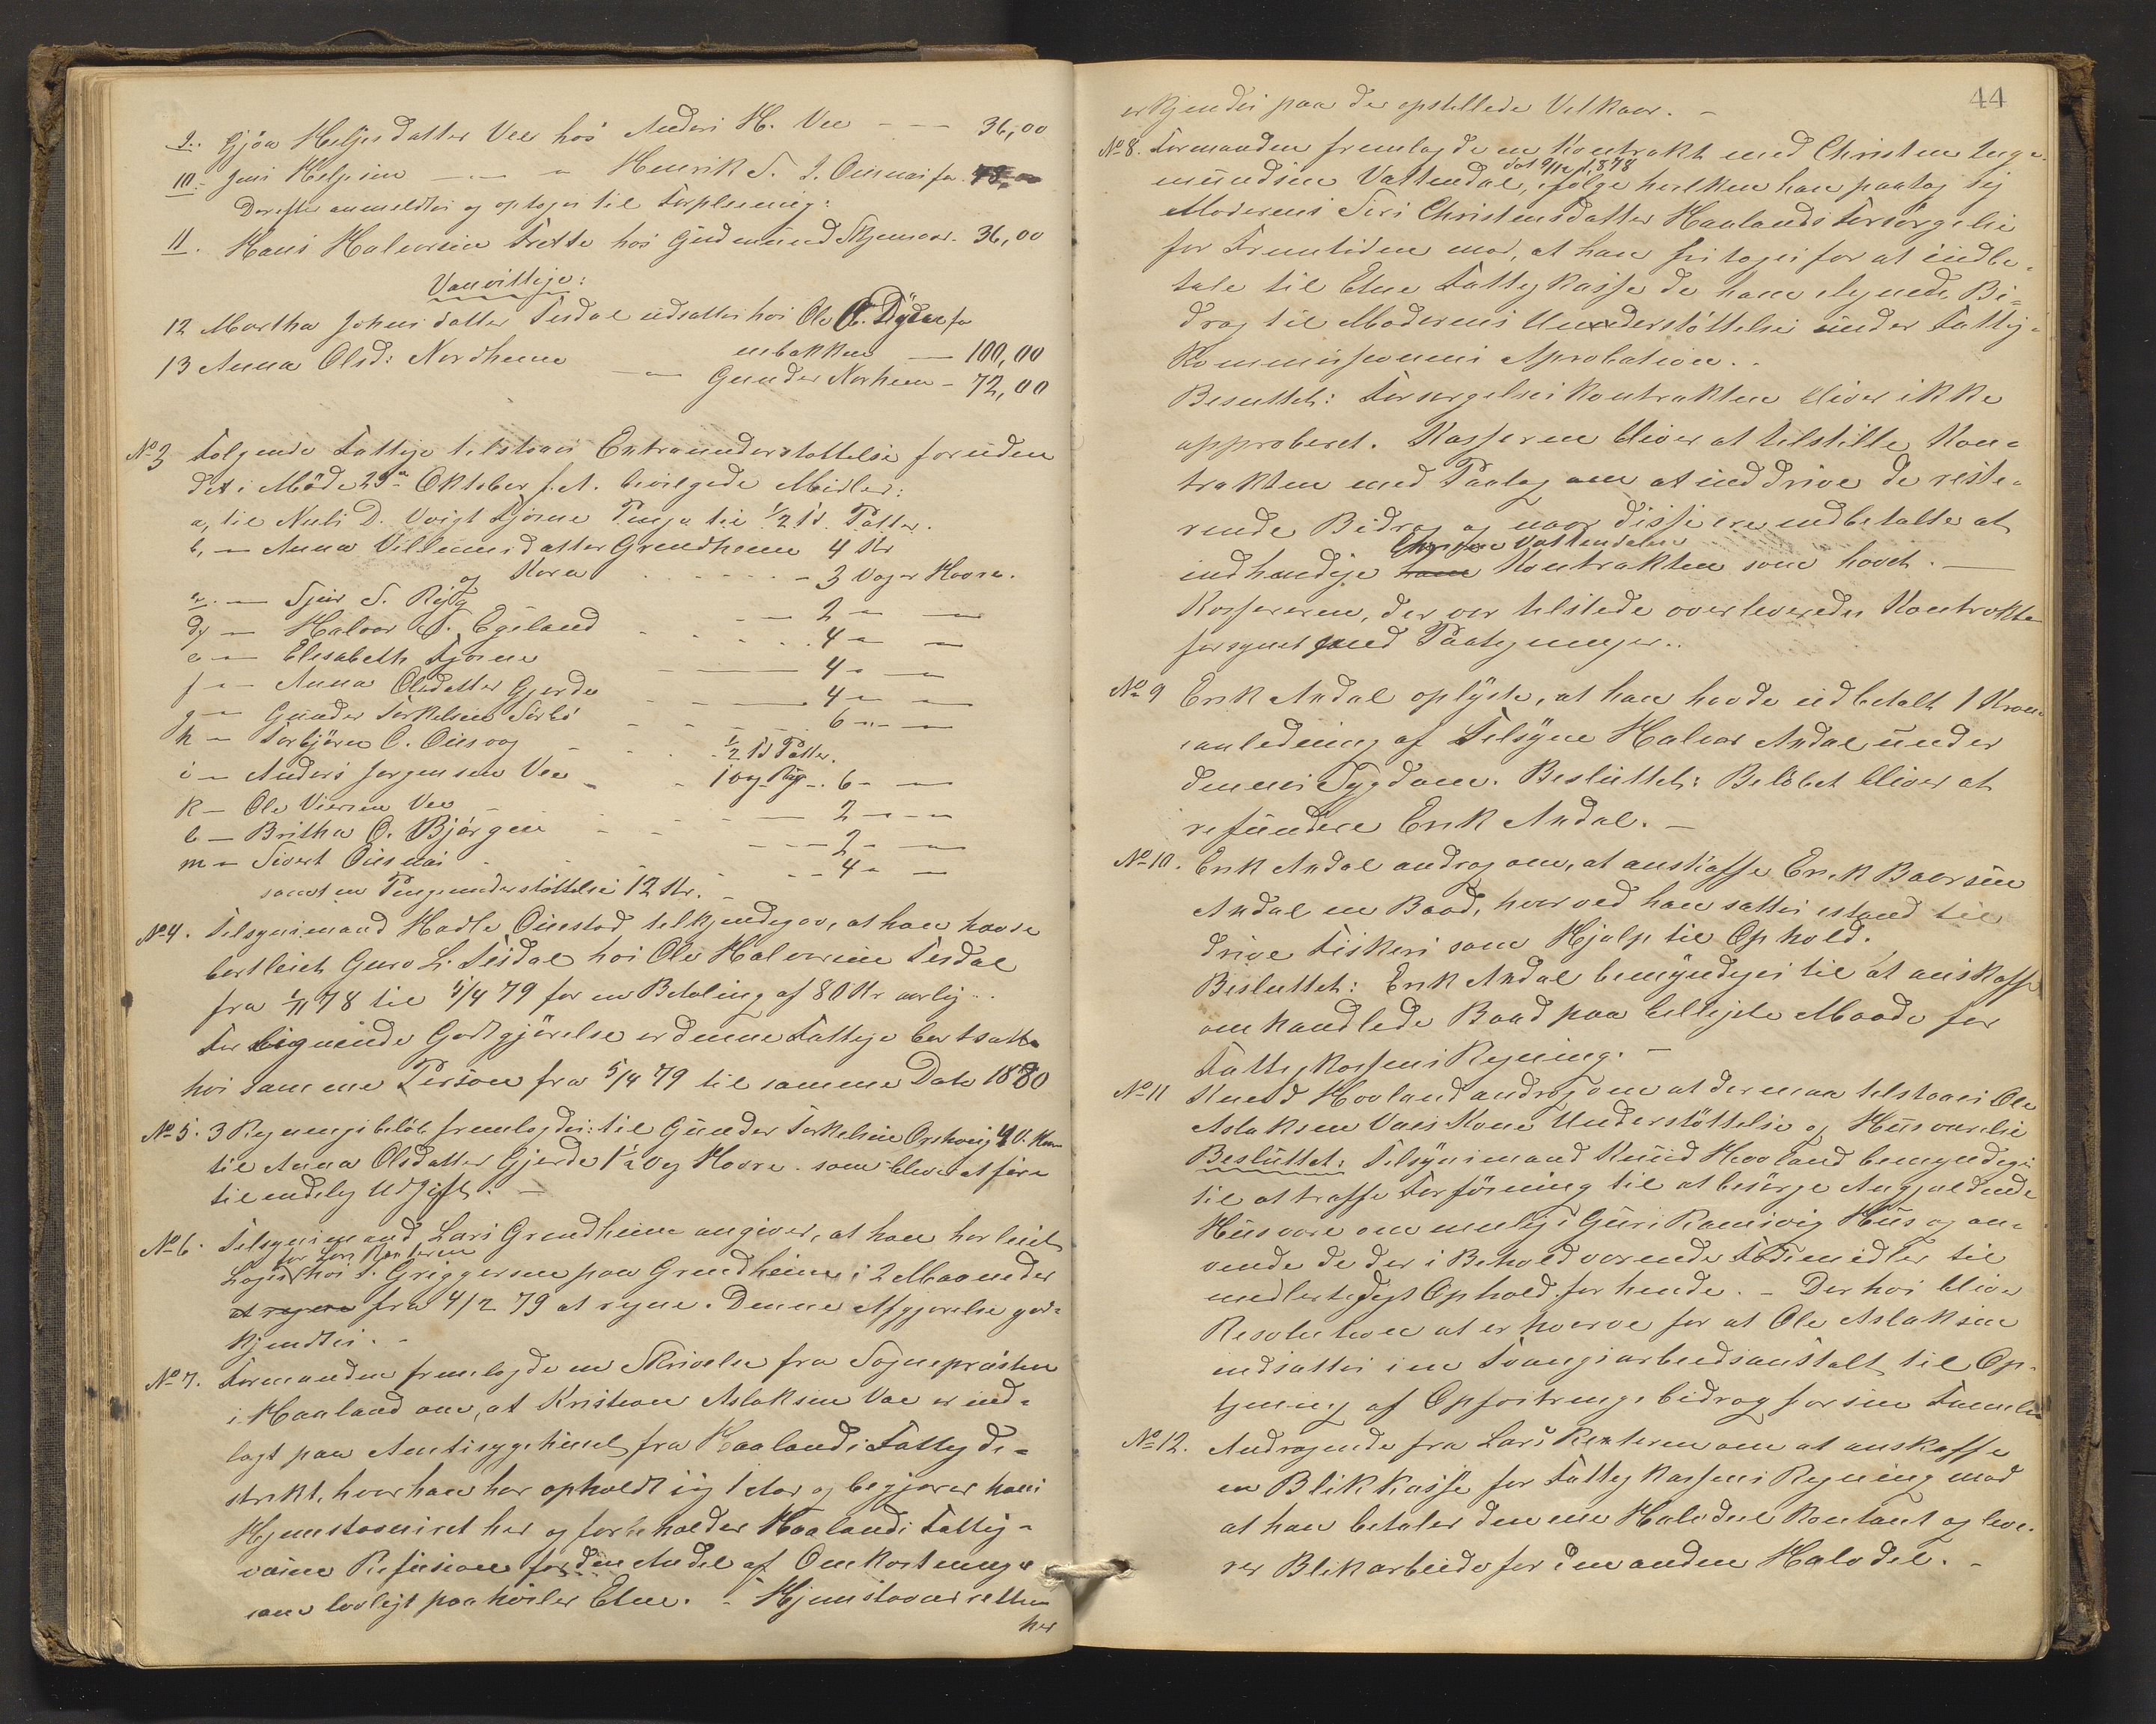 9. Gjøa Heljesdatter Vee hos Anders H. Vee — — 36,00
10. Jens Helgesen — " — Henrik S. I. Ousnæs for
Derefter anmeldtes og optoges til Forpleining:
11. Hans Halvorsen Trette hos Gudmund Skjensvor. 36,00
Vanvittige:
12 Martha Johnsdatter Tesdal udsattes hos Ole
nebakken — 100,00
13 Anna Olsd: Nordheim — " — Gunder Norheim - 72,00
No 3 Følgende Fattige tilstaaes Extraunderstøttelse foruden
det i Møde 29de Oktober f. A. bevilgede Midler:
a, til Nils D. Voigt Fjøsne Penge til 1/2 Td. Poter.
b, — Anna Villumsdatter Grindheim 4 Kr
og Korn - 3 Voger Havre.
c. — Sjur S. Rygg - 2 " —
d, — Halvor S. Egeland - 4 " —
e — Elisabeth Fjøsne — 4 " —
f — Anna Olsdatter Gjerde — 4 " —
g — Gunder Torkelsen Sørbø - 6 " —
h — Torbjørn O. Ousvog - 1/2 Td Poter.
i — Anders Jørgensen Vee - 1 Vog Rug - 6 " —
k — Ole Vierson Vee - 2 — —
l — Britha O. Bjørgen - 2 - —
m — Sivert Ousnæs - 4 " —
samt en Pengeunderstøttelse 12 Kr.
No 4. Tilsynsmand Hadle Ourstad tilkjendegav, at han havde
bortleiet Guro L. Tesdal hos Ole Halvorsen Tesdal
fra 1/11 78 til 5/4 79 for en Betaling af 80 Kr aarlig..
For lignende Godtgjørelse er denne Fattige bortsatte
hos samme Person fra 5/4 79 til samme Dato 1880
No 5. 3 Regningsbeløb fremlagdes: til Gunder Torkelsen 4 V. Korn
til Anna Olsdatter Gjerde 1 1/2 Vog Havre. som blive at føre
til endelig Udgift. —
No 6. Tilsynsmand Lars Grindheim angiver, at han har leiet
for Lars Renteren
Logis hos S. Griggersen paa Grindheim i 2 Maaneder
at regne fra 4/2 79 at regne. Denne Afgjørelse god-
kjendtes. -
No 7. Formanden fremlagde en Skrivelse fra Sognepræsten
i Haaland om, at Kristian Aslaksen Vae er ind-
lagt paa Amtssygehuset fra Haalands Fattigdi-
strikt, hvor han har opholdt sig 1 Aar og begjærer hans
Hjemstavnsret her og forbeholder Haalands Fattig-
væsen Refusion for den Andel af Omkostninger
som lovligt paahviler Etne. - Hjemstavnsretten
her
44
erkjendes paa de opstillede Vilkaar. —
No 8. Formanden fremlagde en Kontrakt med Christen Inge-
dat 9/12 1878
mundsen Vattendal, ifølge hvilken han paatog sig
Moderens Siri Christensdatter Haalands Forsørgelse
for Fremtiden mod, at han fritages for at indbe-
tale til Etne Fattigkasse de ham ilignede Bi-
drag til Moderens Understøttelse under Fattig-
Kommissionens Aprobation..
Besluttet: Forsørgelseskontrakten bliver ikke
approberet. Kassereren bliver at tilstille Kon-
trakten med Paalag om at inddrive de reste-
rende Bidrag og naar disse ere indbetalte at
Christen Vattendalen
indhendige ham Kontrakten som hævet. —
Kassereren, der var tilstede overleveredes Kontrakten
forsynet med Paategninger..
No 9 Erik Ardal oplyste, at han havde udbetalt 1 Krone
i anledning af Tilsyn Halvor Ardal under
dennes Sygdom. Besluttet: Beløbet bliver at
refundere Erik Ardal. —
No 10. Erik Ardal androg om, at anskaffe Erik Baarsen
Ardal en Baad, hvorved han sattes istand til
drive Fiskeri som Hjælp til Ophold.
Besluttet: Erik Ardal bemyndiges til at anskaffe
omhandlede Baad paa billigste Maade for
Fattigkassens Regning. —
No 11 Knud Hovland androg om at der maa tilstaaes Ole
Aslaksen Vaes Kone Understøttelse og Husværelse
Besluttet: Tilsynsmand Knud Hovland bemyndiges
til at træffe Forføining til at besørge Angjældende
Husvære om mulig i Guri Ramsvig Hus og an-
vende de der i Behold værende Fødemidler til
midlertidigt Ophold for hende. - Derhos bliver
Resolution at erhverve for at Ole Aslaksen
indsættes i en Tvangsarbeidsanstalt til Op-
tjening af Opfostringsbidrag for sin Familie
No 12. Andragende fra Lars Renteren om at anskaffe
en Blikkasse for Fattigkassens Regning mod
at han betaler den ene Halvdel kontant og leve-
rer Blikarbeide for den anden Halvdel. -